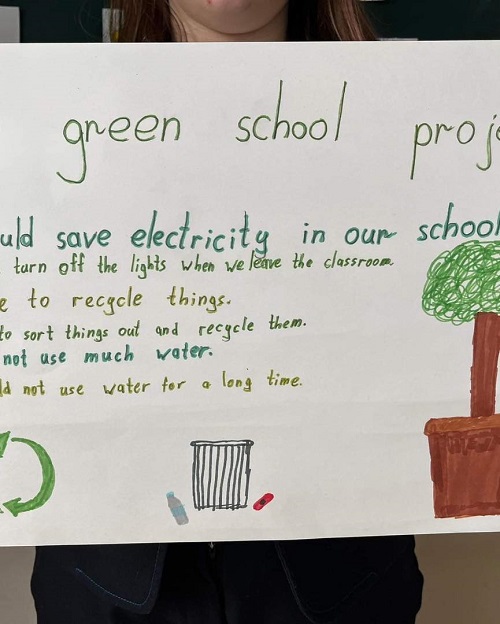 green school proje
uld save electricity in our school
turn off the lights when we leave the classroom.
e to recycle things.
to sort things out and recycle them.
not use much water.
ld not use water for a long time.